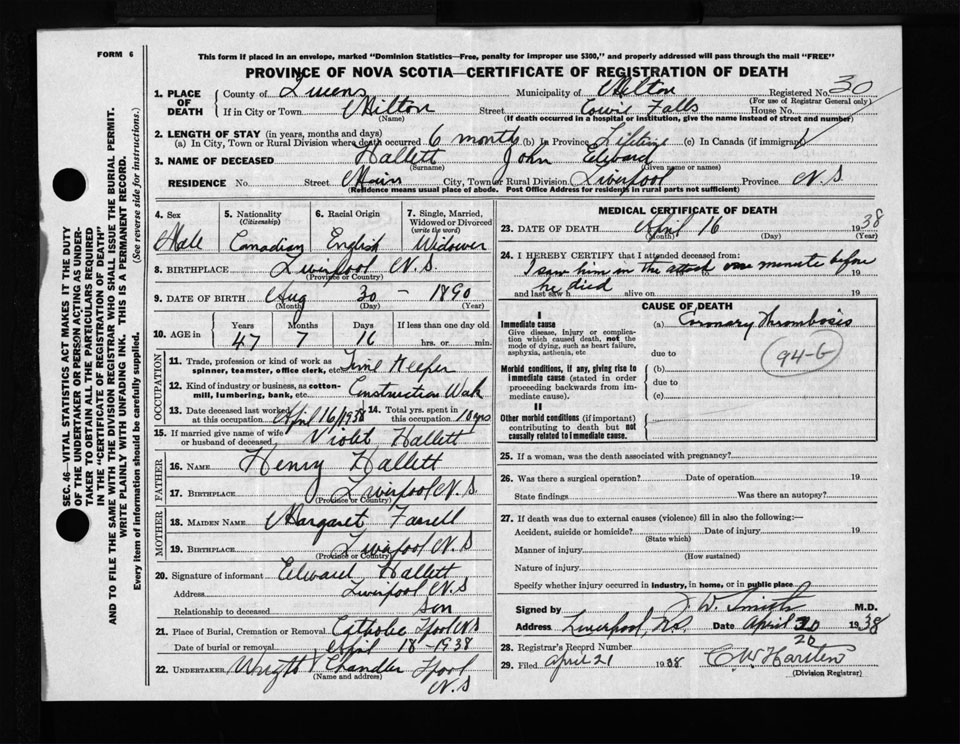 FORM 6
This form if placed in an envelope, marked "Dominion Statistics—Free, penalty for improper use $300," and properly addressed will pass through the mail "FREE"
PROVINCE OF NOVA SCOTIA—CERTIFICATE OF REGISTRATION OF DEATH
1. PLACE OF DEATH County of Queens Municipality of Milton Registered No. 30
(For use of Registrar General only)
If in City or Town Milton Street Cowie Falls House No.
(Name) (If death occurred in a hospital or institution, give the name instead of street and number)
2. LENGTH OF STAY (in years, months and days)
(a) In City, Town or Rural Division where death occurred 6 months (b) In Province Lifetime (c) In Canada (if immigrant)
3. NAME OF DECEASED Hallett John Edward
(Surname) (Given name or names)
RESIDENCE No. Street Main City, Town or Rural Division Liverpool Province N.S
(Residence means usual place of abode. Post Office Address for residents in rural parts not sufficient)
4. Sex Male
5. Nationality (Citizenship) Canadian
6. Racial Origin English
7. Single, Married, Widowed or Divorced (write the word) Widower
8. BIRTHPLACE Liverpool N.S.
(Province or Country)
9. DATE OF BIRTH Aug 30 - 1890
(Month) (Day) (Year)
10. AGE in Years 47 Months 7 Days 16 If less than one day old hrs. or min.
OCCUPATION
11. Trade, profession or kind of work as spinner, teamster, office clerk, etc. Time Keeper
12. Kind of industry or business, as cotton-mill, lumbering, bank, etc. Construction Work
13. Date deceased last worked at this occupation April 16/1938 14. Total yrs. spent in this occupation 10 yrs
15. If married give name of wife or husband of deceased Violet Hallett
FATHER
16. NAME Henry Hallett
17. BIRTHPLACE Liverpool N.S.
(Province or Country)
MOTHER
18. MAIDEN NAME Margaret Farrell
19. BIRTHPLACE Liverpool N.S
(Province or Country)
20. Signature of informant Edward Hallett
Address Liverpool N.S
Relationship to deceased son
21. Place of Burial, Cremation or Removal Catholic Lpool N.S
Date of burial or removal April 18 - 1938
22. UNDERTAKER Wright & Chandler Lpool N.S
(Name and address)
MEDICAL CERTIFICATE OF DEATH
23. DATE OF DEATH April 16 1938
(Month) (Day) (Year)
24. I HEREBY CERTIFY that I attended deceased from:
I saw him in the attack one minute before 19
he died
and last saw h alive on 19
CAUSE OF DEATH
I
Immediate cause
Give disease, injury or complication which caused death, not the mode of dying, such as heart failure, asphyxia, asthenia, etc
(a) Coronary Thrombosis
94-G
due to
Morbid conditions, if any, giving rise to immediate cause (stated in order proceeding backwards from immediate cause).
(b)
due to
(c)
II
Other morbid conditions (if important) contributing to death but not causally related to immediate cause.
25. If a woman, was the death associated with pregnancy?
26. Was there a surgical operation? Date of operation 19
State findings Was there an autopsy?
27. If death was due to external causes (violence) fill in also the following:—
Accident, suicide or homicide? Date of injury 19
(State which)
Manner of injury
(How sustained)
Nature of injury
Specify whether injury occurred in industry, in home, or in public place
Signed by J. W. Smith M.D.
Address Liverpool, N.S. Date April 20 1938
28. Registrar's Record Number 20
29. Filed April 21 1938 C. W. Harsten
(Division Registrar)
SEC. 46—VITAL STATISTICS ACT MAKES IT THE DUTY
OF THE UNDERTAKER OR PERSON ACTING AS UNDER-
TAKER TO OBTAIN ALL THE PARTICULARS REQUIRED
IN THE "CERTIFICATE OF REGISTRATION OF DEATH"
AND TO FILE THE SAME WITH THE DIVISION REGISTRAR WHO SHALL ISSUE THE BURIAL PERMIT.
WRITE PLAINLY WITH UNFADING INK. THIS IS A PERMANENT RECORD.
Every item of information should be carefully supplied. (See reverse side for instructions.)